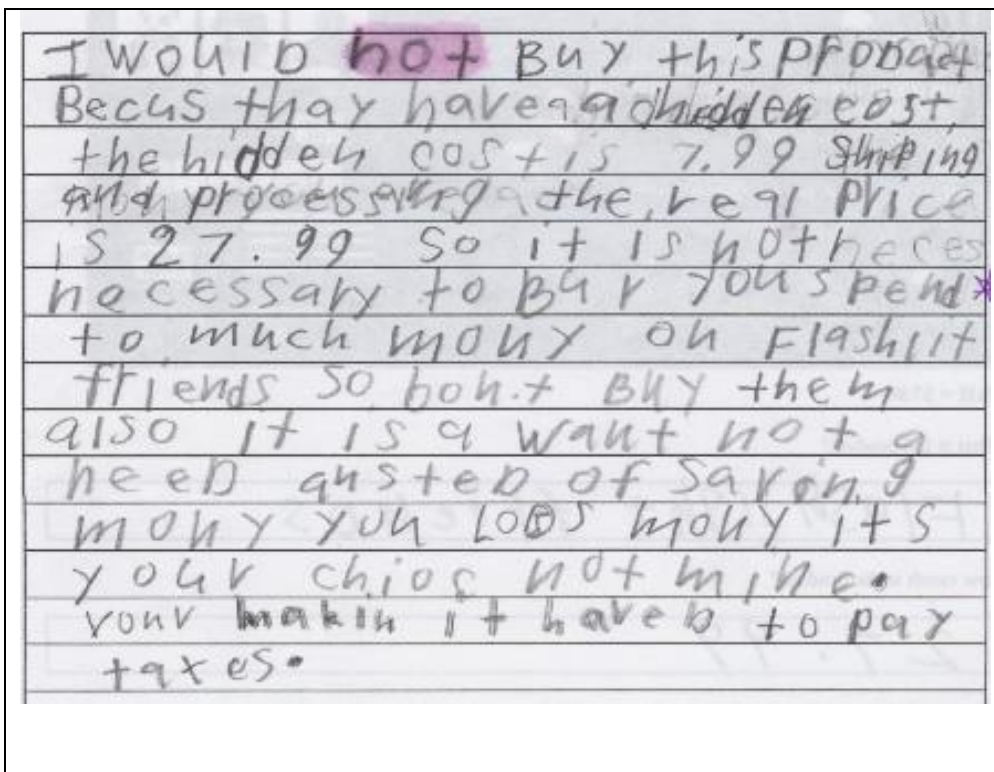 I WOUlD not BuY this PRODuct
Becus thay have a hidden cost,
the hidden cost is 7.99 Shiping
and processing the real Price
is 27.99 so it is not neces
necessary to BuY You spend*
to much mony on Flashlit
friends so Don.t BuY them
also it is a want not a
neeD ansteD of saving
mony you LOOS mony its
your chioc not mine.
your makin it haveD to pay
taxes.